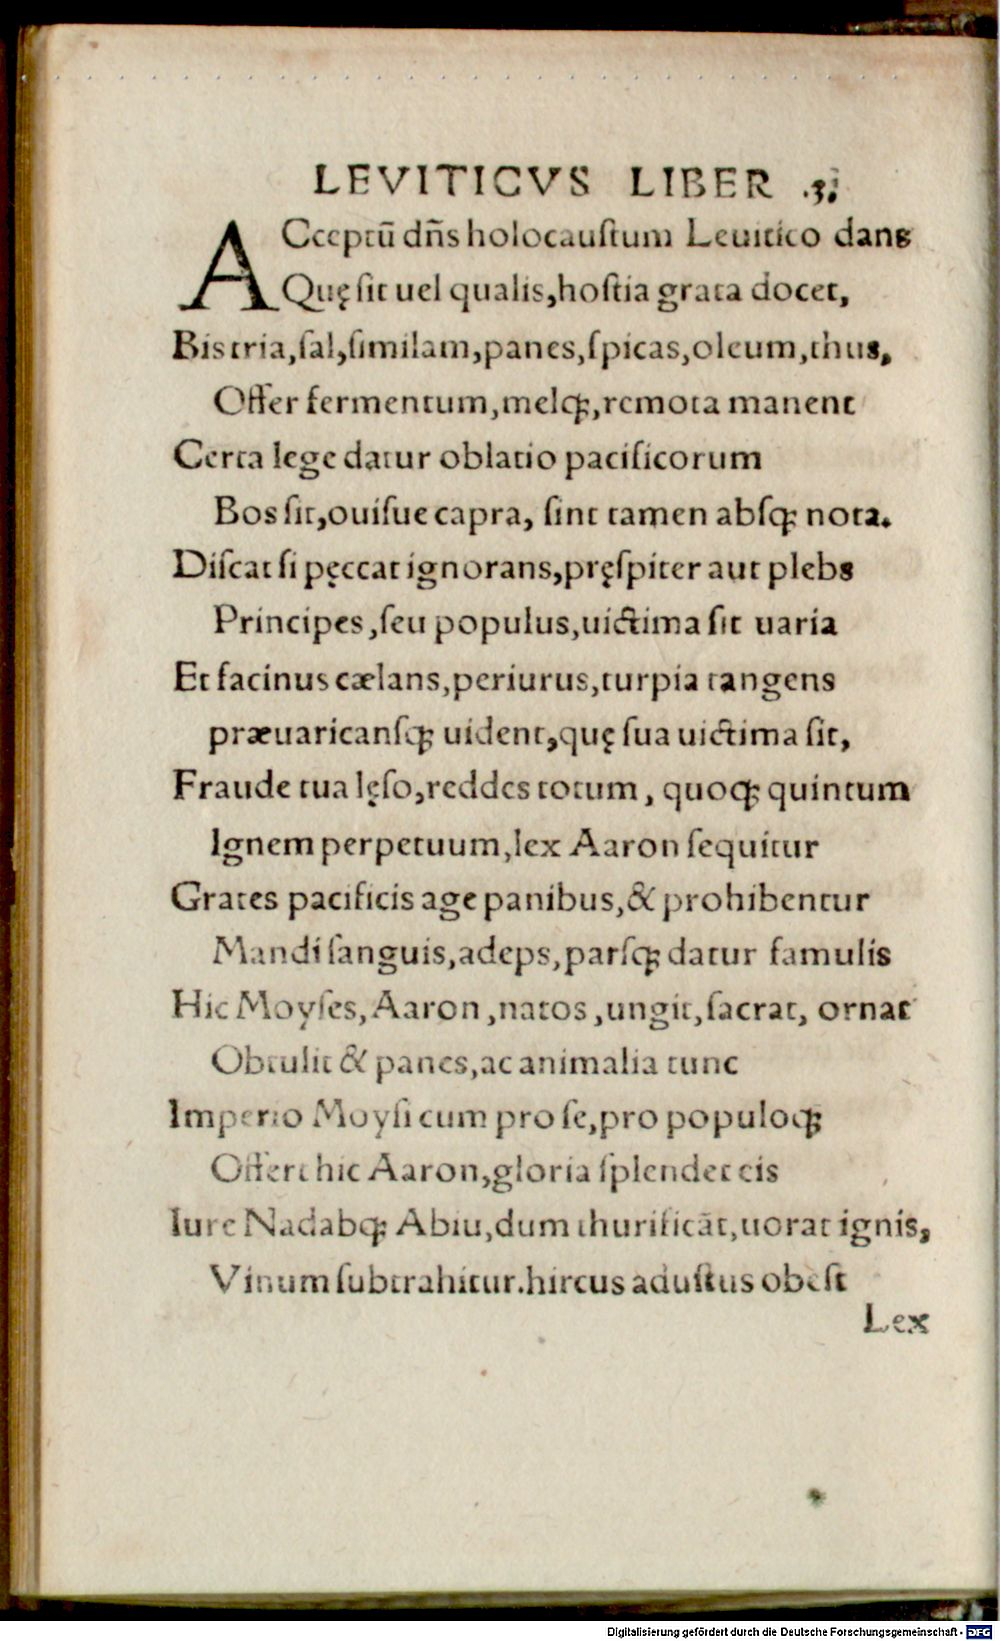 LEVITICVS LIBER .3;
ACceptū dn̄s holocauſtum Leuitico dans
Quę ſit uel qualis, hoſtia grata docet,
Bis tria, ſal, ſimilam, panes, ſpicas, oleum, thus,
Offer fermentum, melq;, remota manent
Certa lege datur oblatio pacificorum
Bos ſit, ouiſue capra, ſint tamen abſq; nota.
Diſcat ſi pęccat ignorans, pręſpiter aut plebs
Principes, ſeu populus, uictima ſit uaria
Et facinus cælans, periurus, turpia tangens
præuaricanſq; uident, quę ſua uictima ſit,
Fraude tua lęſo, reddes totum, quoq; quintum
Ignem perpetuum, lex Aaron ſequitur
Grates pacificis age panibus, & prohibentur
Mandi ſanguis, adeps, parſq; datur famulis
Hic Moyſes, Aaron, natos, ungit, ſacrat, ornat
Obtulit & panes, ac animalia tunc
Imperio Moyſi cum pro ſe, pro populoq;
Offert hic Aaron, gloria ſplendet eis
Iure Nadabq; Abiu, dum thurificāt, uorat ignis,
Vinum ſubtrahitur. hircus aduſtus obeſt
Lex
Digitalisierung gefördert durch die Deutsche Forschungsgemeinschaft - DFG